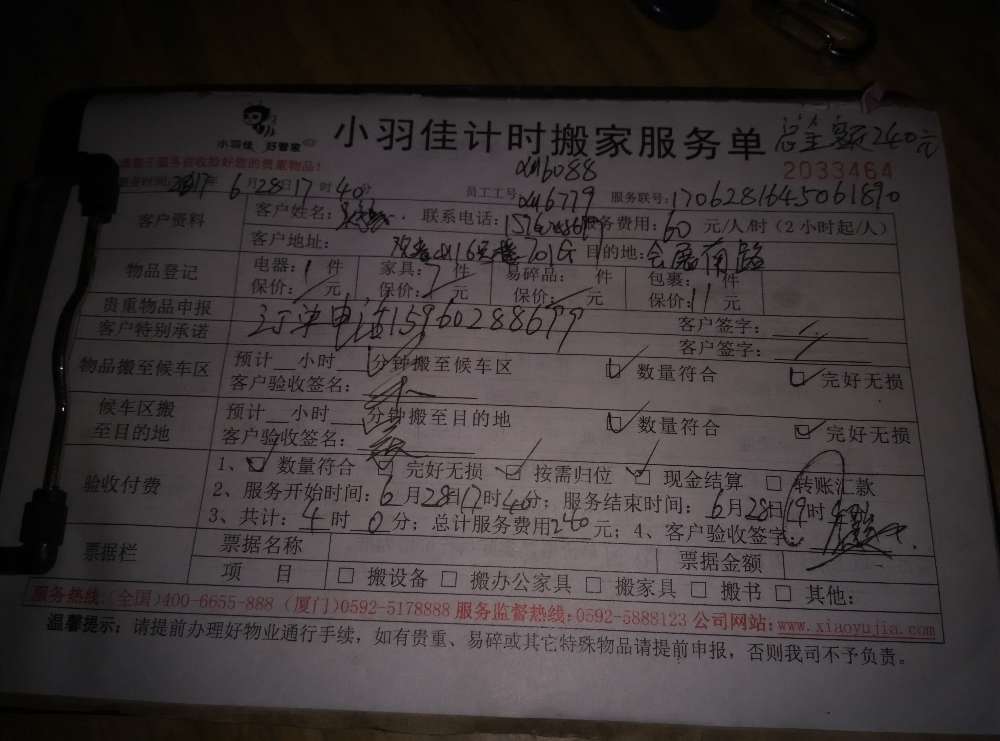 小羽佳 好管家
小羽佳计时搬家服务单 总金额240元
2033464
XM6088
服务时间:2017年6月28日17时40分 员工工号:XM6779 服务联号:1706281645061890
客户资料 客户姓名: 联系电话: 服务费用:60元/人/时(2小时起/人)
客户地址: 701 目的地:会展南路
物品登记 电器:1件 家具:7件 易碎品: 件 包裹:11件
保价: 元 保价: 元 保价: 元 保价: 元
贵重物品申报 客户签字:
客户特别承诺 订单电话15960288699 客户签字:
物品搬至候车区 预计 小时 分钟搬至候车区 数量符合 完好无损
客户验收签名:
候车区搬至目的地 预计 小时 分钟搬至目的地 数量符合 完好无损
客户验收签名:
验收付费 1、数量符合 完好无损 按需归位 现金结算 转账汇款
2、服务开始时间:6月28日17时40分;服务结束时间:6月28日19时
3、共计:4时0分;总计服务费用240元;4、客户验收签字:
票据栏 票据名称 票据金额
项 目 □搬设备 □搬办公家具 □搬家具 □搬书 □其他:
服务热线:(全国)400-6655-888 (厦门)0592-5178888 服务监督热线:0592-5888123 公司网站:www.xiaoyujia.com
温馨提示:请提前办理好物业通行手续,如有贵重、易碎或其它特殊物品请提前申报,否则我司不予负责。